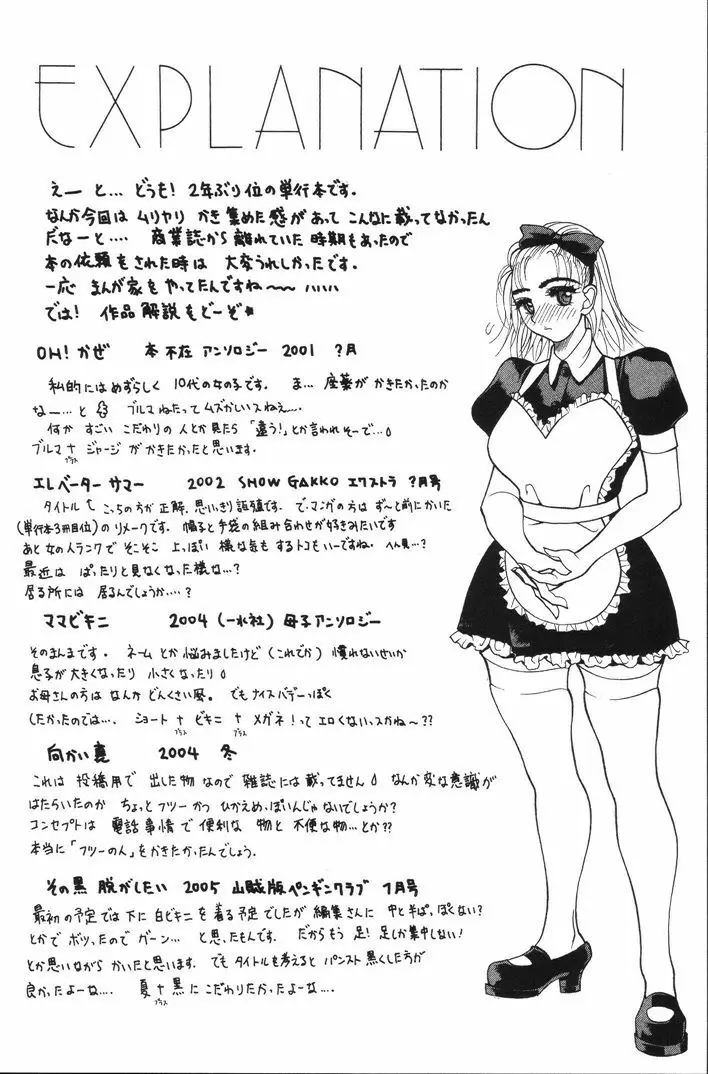 EXPLANATION
えーと… どうも! 2年ぶり位の単行本です.
なんか今回は ムリヤリ かき集めた感があって こんなに載ってなかったん
だなーと…. 商業誌から離れていた時期もあったので
本の依頼をされた時は 大変うれしかったです.
一応 まんが家をやってたんですね〜〜 ハハハ
では! 作品解説をどーぞ
OH! かぜ 本不在 アンソロジー 2001 ?月
私的にはめずらしく 10代の女の子です. ま… 座薬がかきたかったのか
な〜…と ブルマねたって ムズかしいスねぇ〜.
何かすごいこだわりの人とか見たら「違う!」とか言われそーで…
ブルマ+ジャージがかきたかったと思います.
プラス
エレベーター サマー 2002 SNOW GAKKO エクストラ ?月号
タイトル こっちの方が正解. 思いきり誤植です. で.マンガの方は ず〜と前にかいた
(単行本3冊目位)のリメークです. 帽子と手袋の組み合わせが好きみたいです
あと 女の人ランクで そこそこ 上っぽい 様な気も するトコもいーですね.
最近は ぱったりと見なくなった様な…?
居る所には 居るんでしょうか….?
ママビキニ 2004 (一水社) 母子アンソロジー
そのまんまです. ネームとか悩みましたけど(これでか) 慣れないせいか
息子が大きくなったり 小さくなったり
お母さんの方は なんか どんくさい風. でもナイスバデーっぽく
したかったのでは…. ショート+ビキニ+メガネ!って エロくないっスかね〜??
プラス プラス
向かい裏 2004 冬
これは 投稿用で 出した物なので 雑誌には載ってません なんか変な意識が
はたらいたのか ちょっとフツーかつひかえめっぽいんじゃないでしょうか?
コンセプトは 電話事情で便利な物と不便な物…とか??
本当に「フツーのん」をかきたかったんでしょう.
その黒 脱がしたい 2005 山賊版ペンギンクラブ 1月号
最初の予定では下に白ビキニを着る予定でしたが 編集さんに 中とそっぽくない?
とかで ボツったので ガーン… と思ったもんです. だからもう足! 足しか集中しない!
とか思いながら かいたと思います. でもタイトルも考えると パンスト黒くした方が
良かったよーな…. 夏+黒にこだわりたかったよーな….
プラス